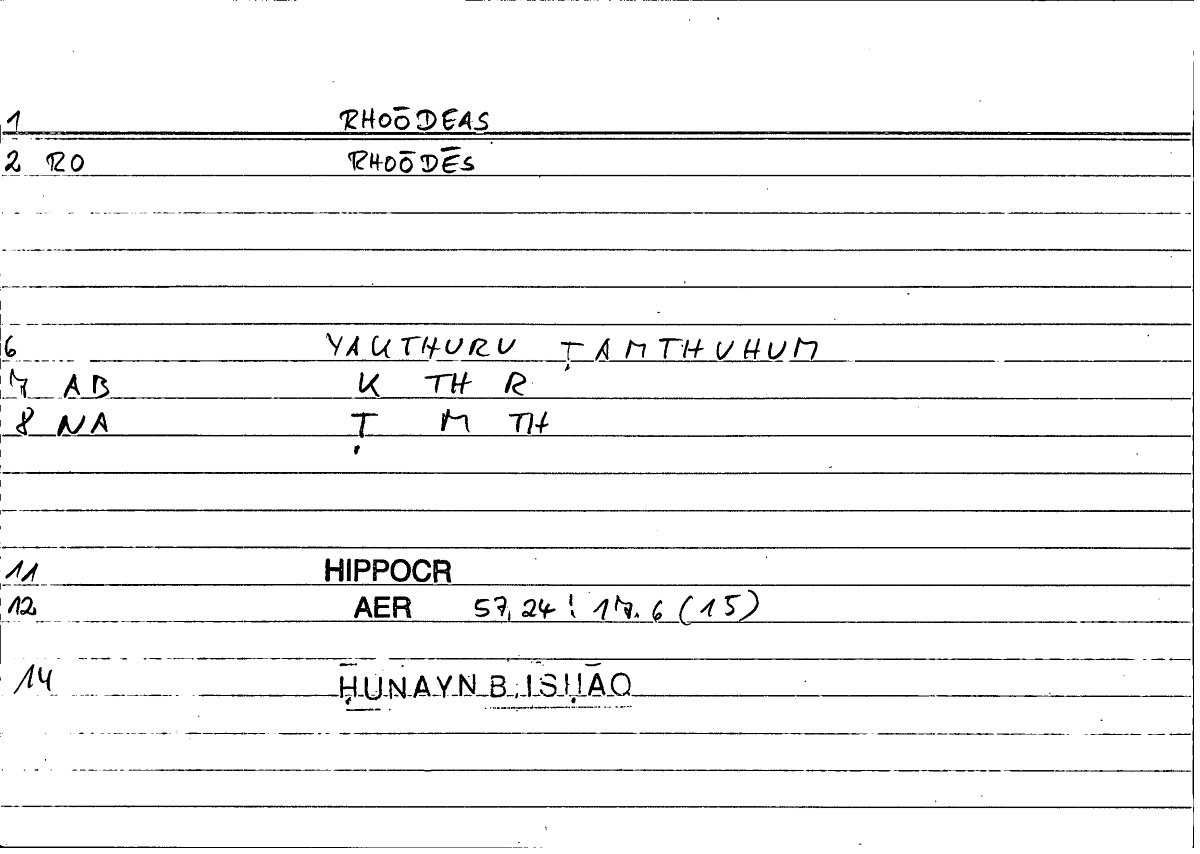 1 RHOŌDEAS
2 RO RHOŌDĒS
6 YAKTHURU ṬAMTHUHUM
7 AB K TH R
8 NA Ṭ M TH
11 HIPPOCR
12 AER 57,24 : 17.6 (15)
14 ḤUNAYN B. ISḤĀQ